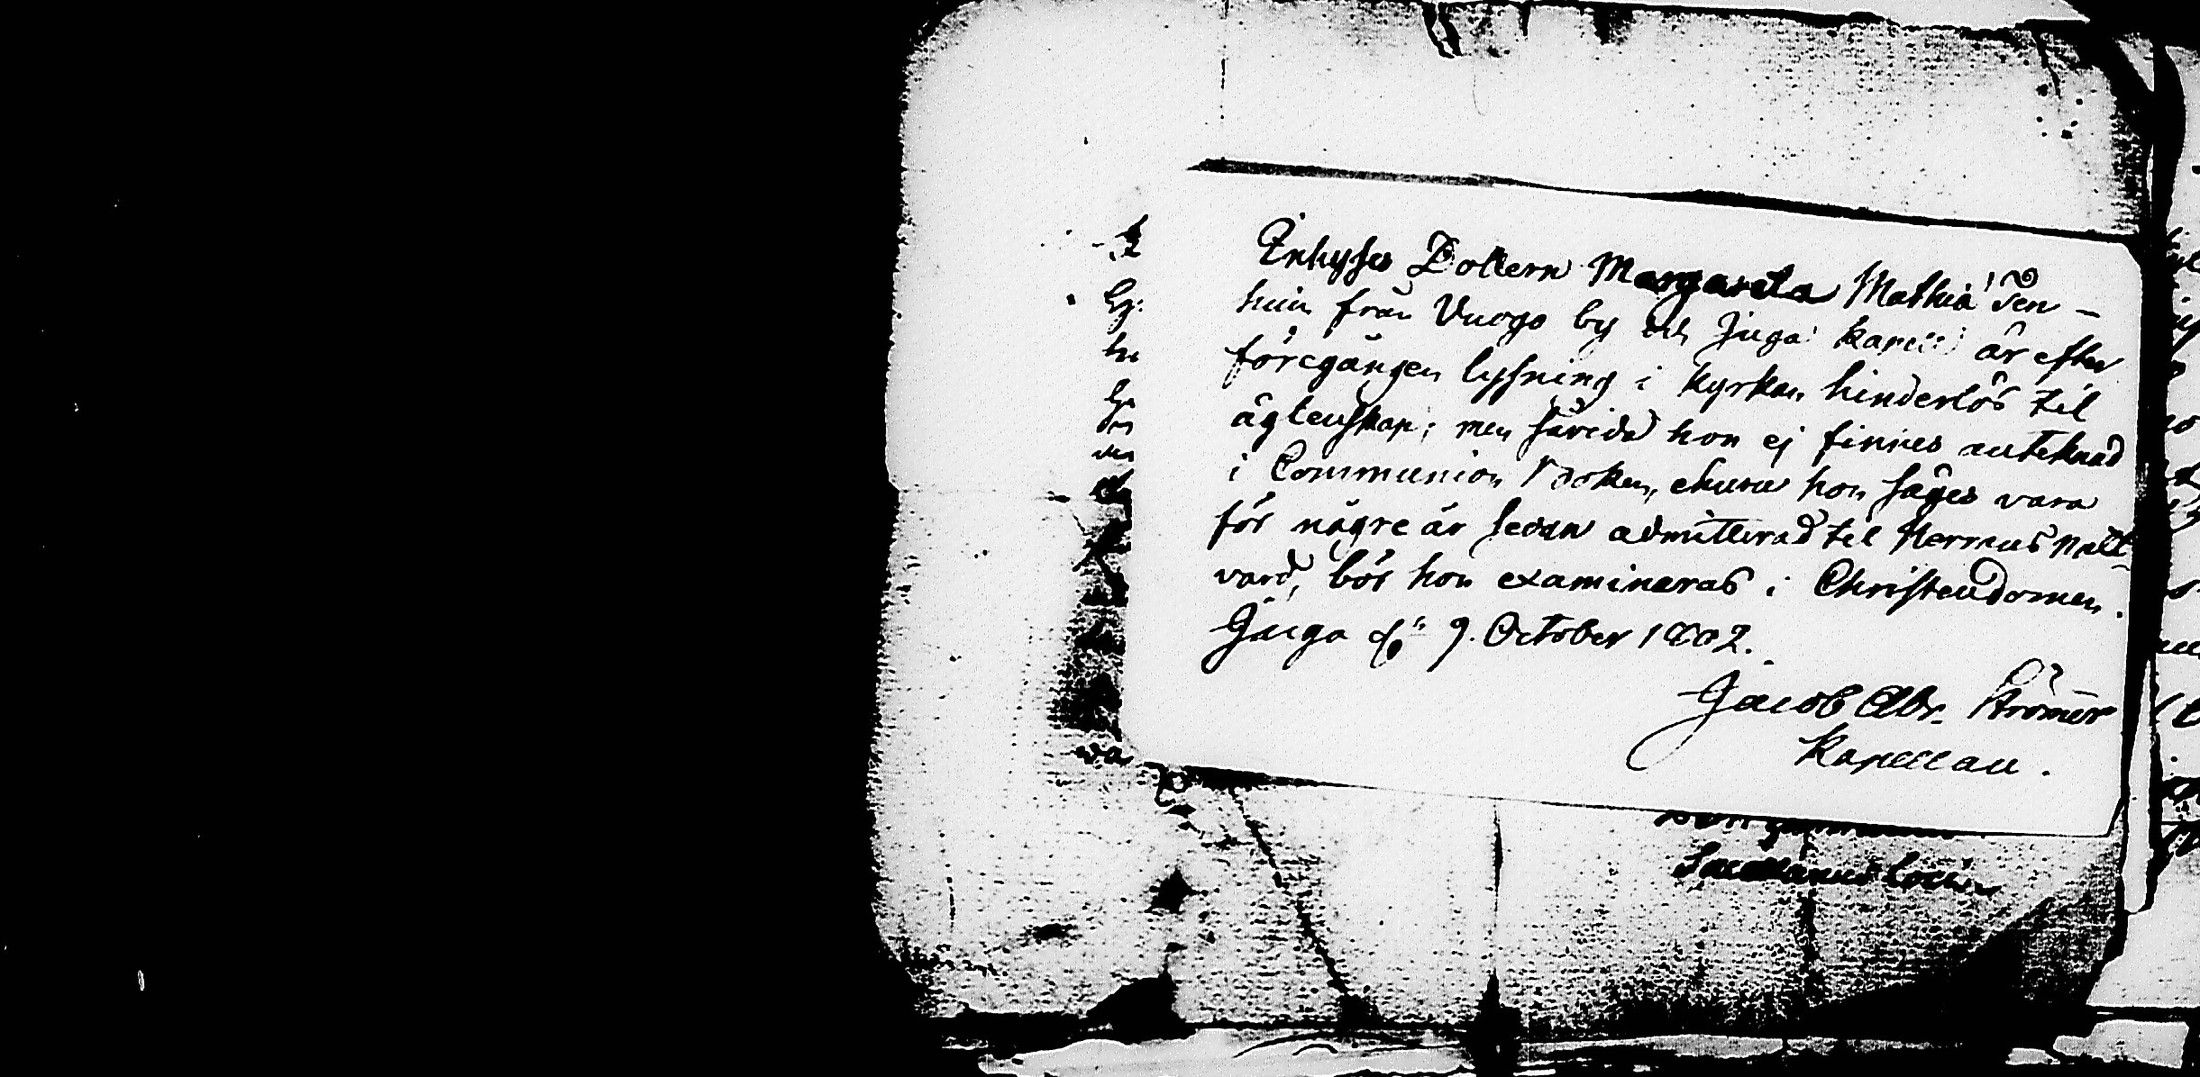 Inhyses Dottern Margareta Mathiä Pen-
huin från Vuogo by och Juga kapell är efter
föregången lysning i kyrkan hinderlös til
ägtenskap; men såvida hon ej finnes anteknad
i Communion Boken, ehuru hon säges vara
för någre år sedan admitterad til Herrans natt
vard, bör hon examineras i Christendomen.
Juga d. 9. October 1802.
Jacob Abr. Strömer
Kapellan.
Sacellanus loci